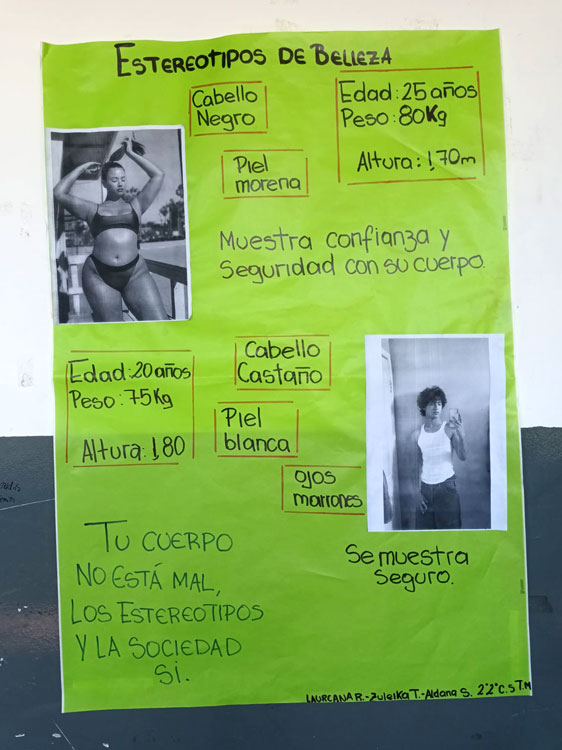 ESTEREOTIPOS DE BELLEZA
Cabello
Negro
Edad: 25 años
Peso: 80Kg
Altura: 1,70m
Piel
morena
Muestra confianza y
Seguridad con su cuerpo.
Edad: 20 años
Peso: 75Kg
Altura: 1,80
Cabello
Castaño
Piel
blanca
ojos
marrones
Se muestra
Seguro.
TU CUERPO
NO ESTÁ MAL,
LOS ESTEREOTIPOS
Y LA SOCIEDAD
SI.
Zuleika T.-Aldana S. 2°2°C.S T.M